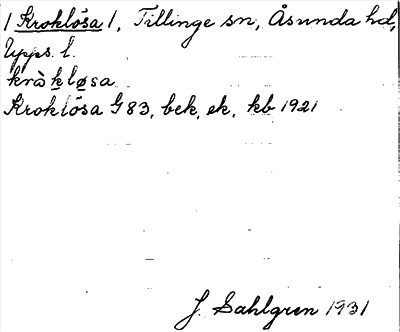 / Kroklösa /, Tillinge sn, Åsunda hd,
Upps. l.
kràkløsa
Kroklösa G83, bek, ek, kb 1921
J. Sahlgren 1931